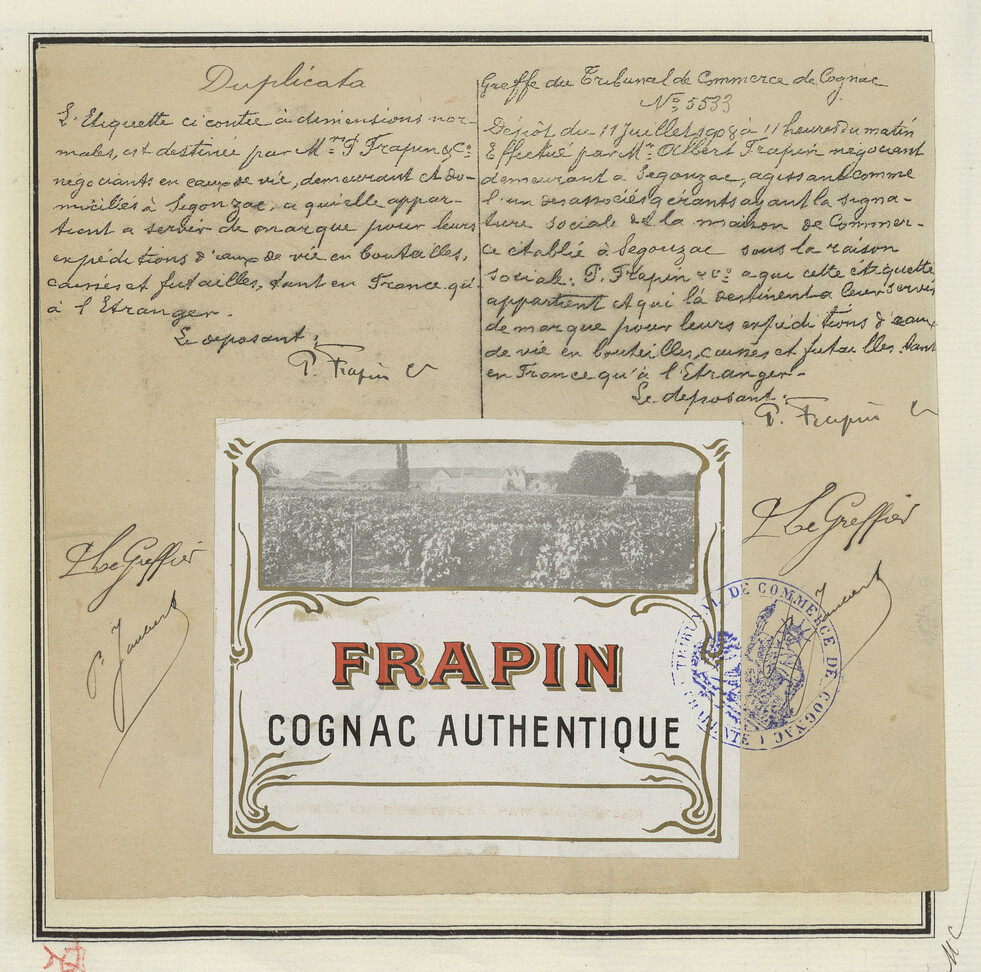 Duplicata
L'Etiquette ci contre à dimensions nor-
males, est destinée par Mrs P. Frapin & Co
négociants en eaux de vie, demeurant et do-
miciliés à Segonzac, a qui elle appar-
tient a servir de marque pour leurs
expéditions d'eaux de vie en bouteilles,
caisses et futailles, tant en France qu'
à l'Etranger.
Le deposant,
P. Frapin Co
Greffe du Tribunal de Commerce de Cognac
No 5533
Dépôt du 11 Juillet 1908 à 11 heures du matin
Effectué par Mr Albert Frapin négociant
demeurant à Segonzac, agissant comme
l'un des associés gérants ayant la signa-
ture sociale de la maison de Commer-
ce établie à Segonzac sous la raison
sociale: P. Frapin & Co a qui cette étiquette
appartient et qui la destinent a leur servir
de marque pour leurs expéditions d'eaux
de vie en bouteilles, caisses et futailles tant
en France qu'à l'Etranger-
Le deposant.
P. Frapin Co
Le Greffier
Le Greffier
FRAPIN
COGNAC AUTHENTIQUE
TRIBUNAL DE COMMERCE DE COGNAC